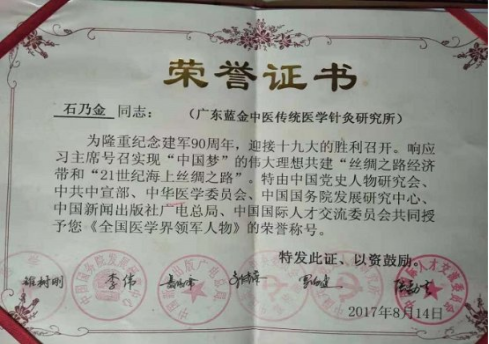 荣誉证书
石乃金 同志：（广东蓝金中医传统医学针灸研究所）
为隆重纪念建军90周年，迎接十九大的胜利召开。响应
习主席号召实现“中国梦”的伟大理想共建“丝绸之路经济
带和“21世纪海上丝绸之路”。特由中国党史人物研究会、
中共中宣部、中华医学委员会、中国国务院发展研究中心、
中国新闻出版社广电总局、中国国际人才交流委员会共同授
予您《全国医学界领军人物》的荣誉称号。
特发此证、以资鼓励。
李伟
2017年8月14日